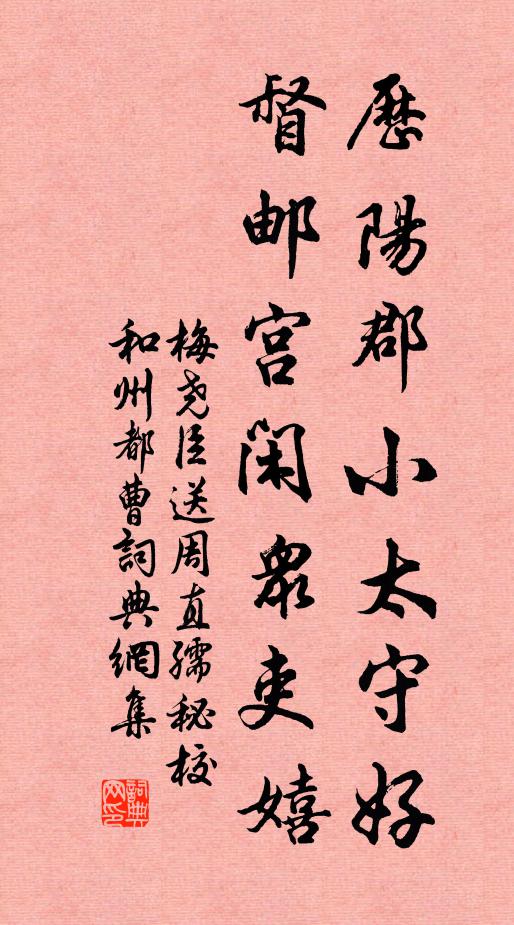 歷陽郡小太守好
督邮宫閑衆吏嬉
梅尧臣送周直孺秘校
和州都曹詞典網集
詞典网印